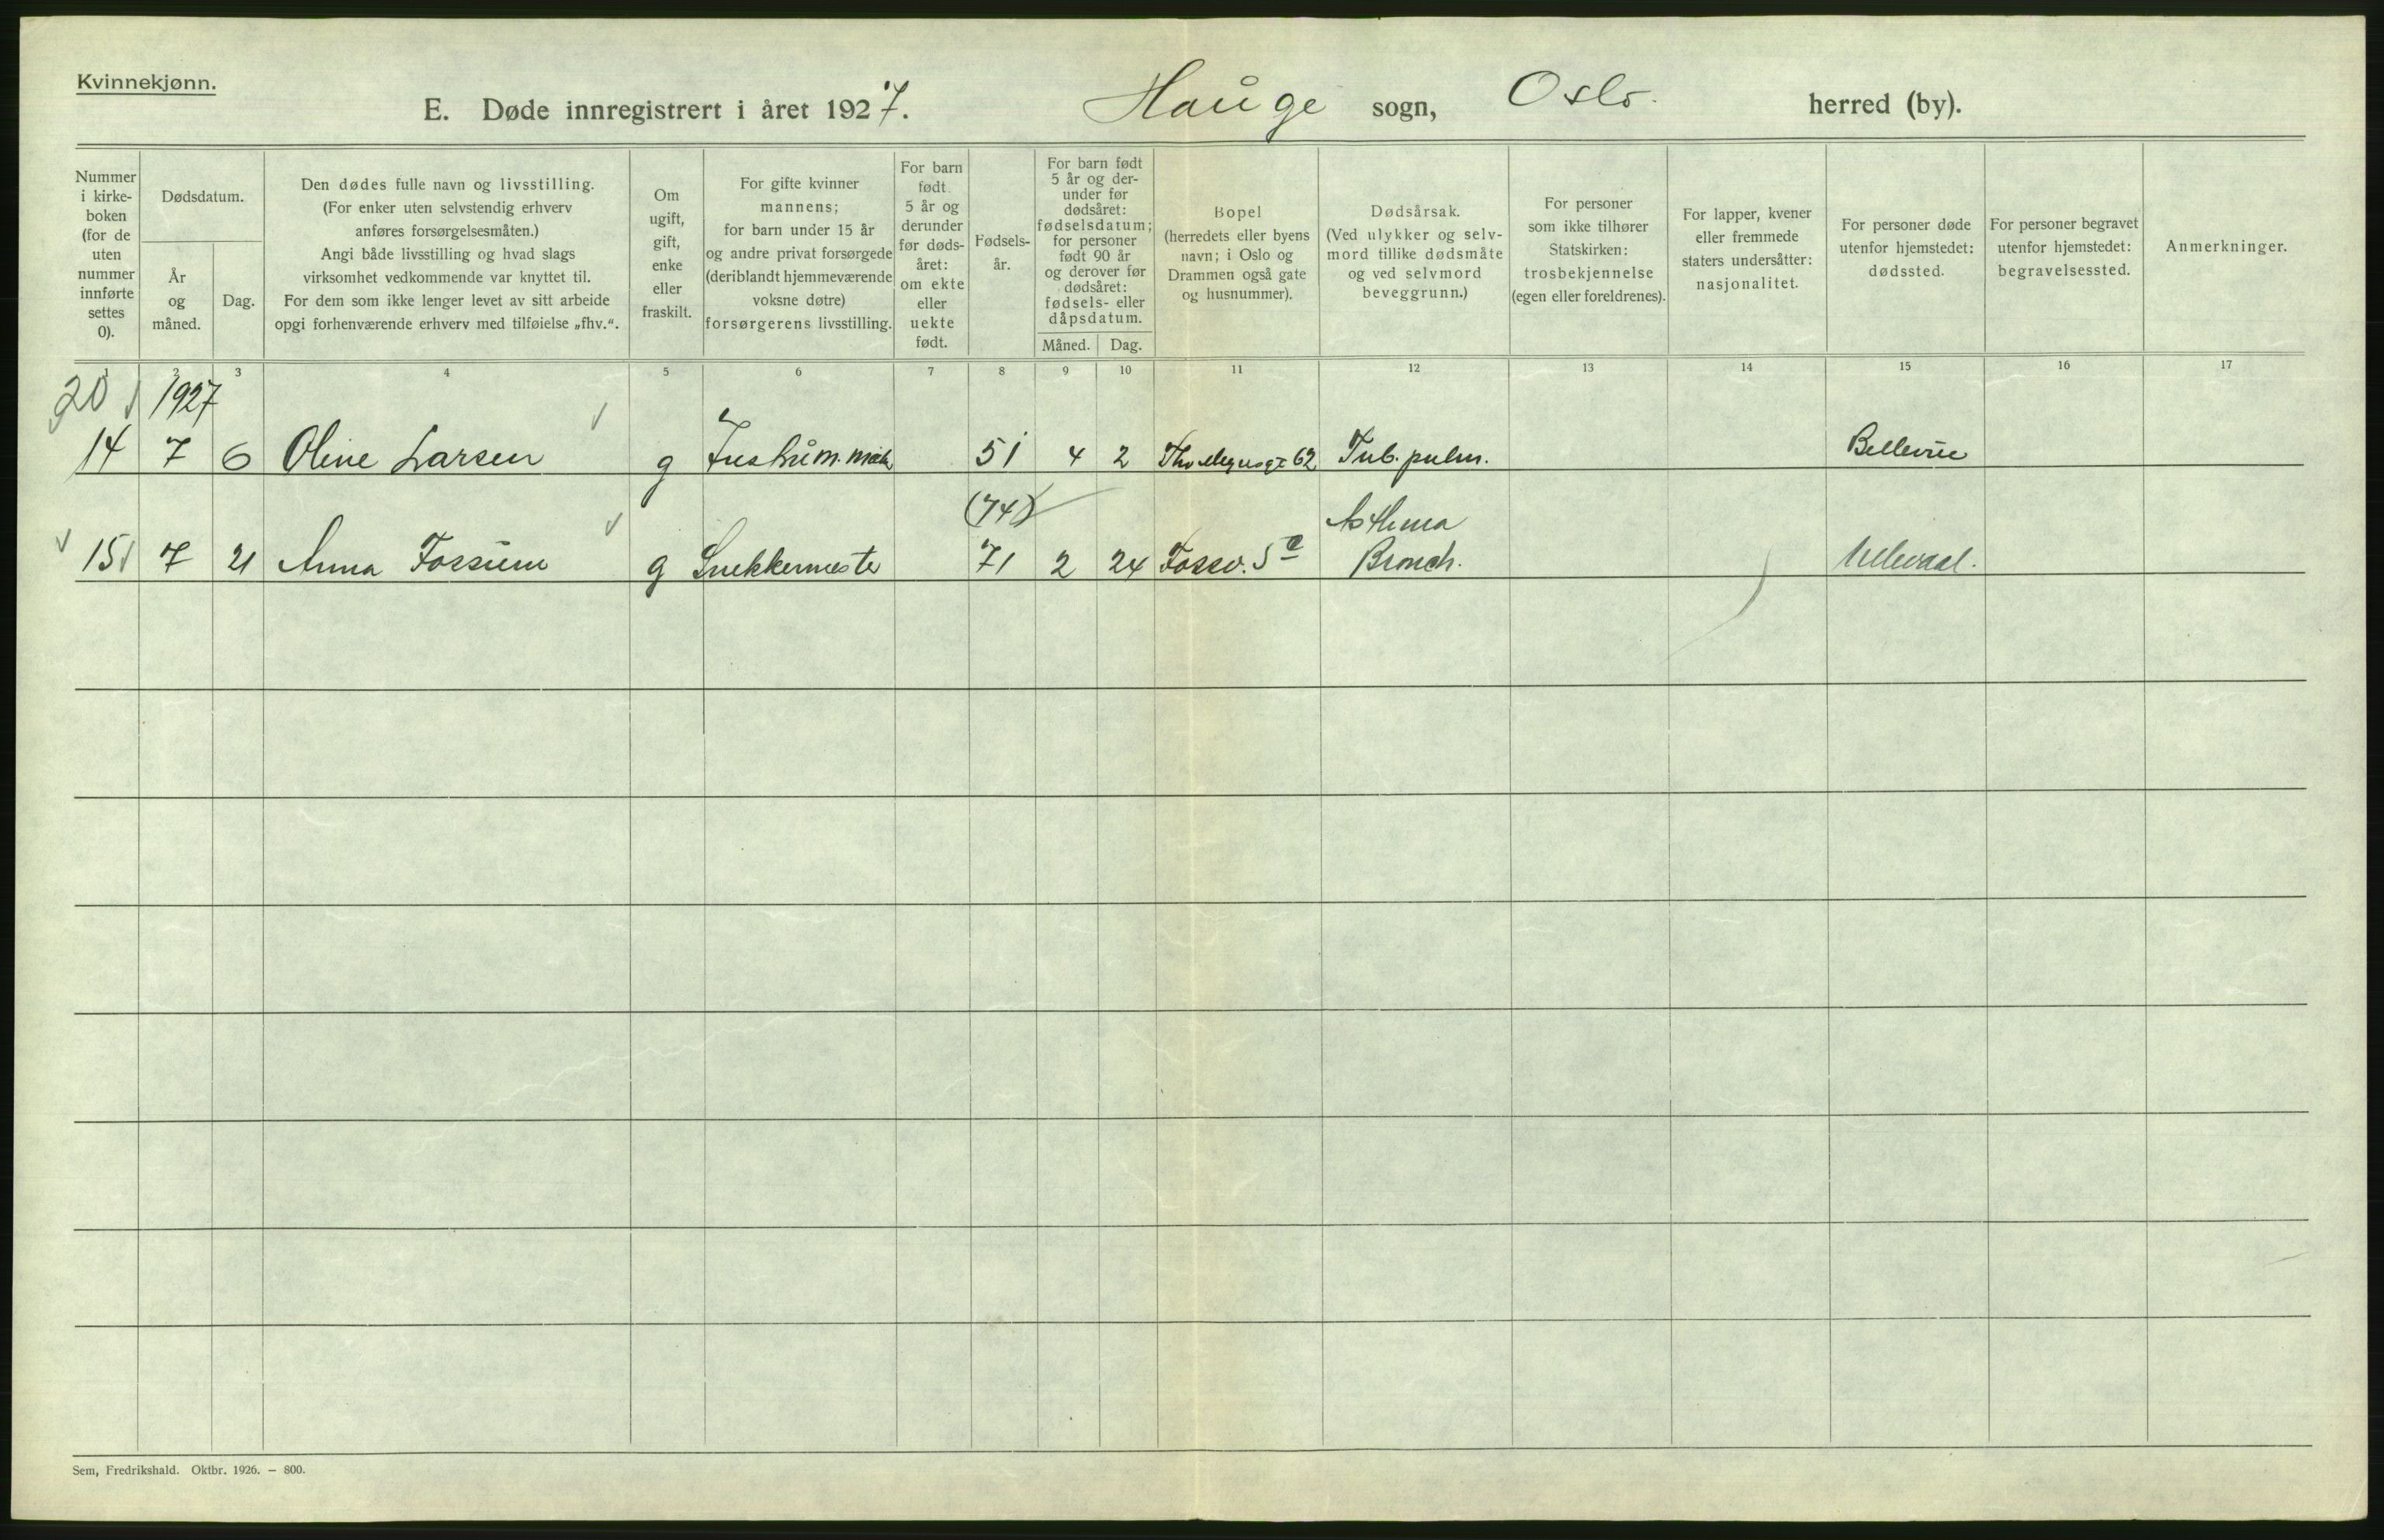 Kvinnekjønn.
E. Døde innregistrert i året 1927. Hauge sogn, Oslo. herred (by).
Nummer
i kirke-
boken
(for de
uten
nummer
innførte
settes
0).
Dødsdatum.
År
og
måned.
Dag.
Den dødes fulle navn og livsstilling.
(For enker uten selvstendig erhverv
anføres forsørgelsesmåten.)
Angi både livsstilling og hvad slags
virksomhet vedkommende var knyttet til.
For dem som ikke lenger levet av sitt arbeide
opgi forhenværende erhverv med tilføielse „fhv.“.
Om
ugift,
gift,
enke
eller
fraskilt.
For gifte kvinner
mannens;
for barn under 15 år
og andre privat forsørgede
(deriblandt hjemmeværende
voksne døtre)
forsørgerens livsstilling.
For barn
født
5 år og
derunder
før døds-
året:
om ekte
eller
uekte
født.
Fødsels-
år.
For barn født
5 år og der-
under før
dødsåret:
fødselsdatum;
for personer
født 90 år
og derover før
dødsåret:
fødsels- eller
dåpsdatum.
Måned. Dag.
Bopel
(herredets eller byens
navn; i Oslo og
Drammen også gate
og husnummer).
Dødsårsak.
(Ved ulykker og selv-
mord tillike dødsmåte
og ved selvmord
beveggrunn.)
For personer
som ikke tilhører
Statskirken:
trosbekjennelse
(egen eller foreldrenes).
For lapper, kvener
eller fremmede
staters undersåtter:
nasjonalitet.
For personer døde
utenfor hjemstedet:
dødssted.
For personer begravet
utenfor hjemstedet:
begravelsessted.
Anmerkninger.
1 2 3 4 5 6 7 8 9 10 11 12 13 14 15 16 17
20 1927
14 7 6 Oline Larsen g 51 4 2 62 Tub. pulm. Bellevue
(74) Asthma
15 7 21 Anna Fossum g Snekkermester 71 2 24 Fossv. 5 e Bronch. Ullevaal.
Sem, Fredrikshald. Oktbr. 1926. — 800.